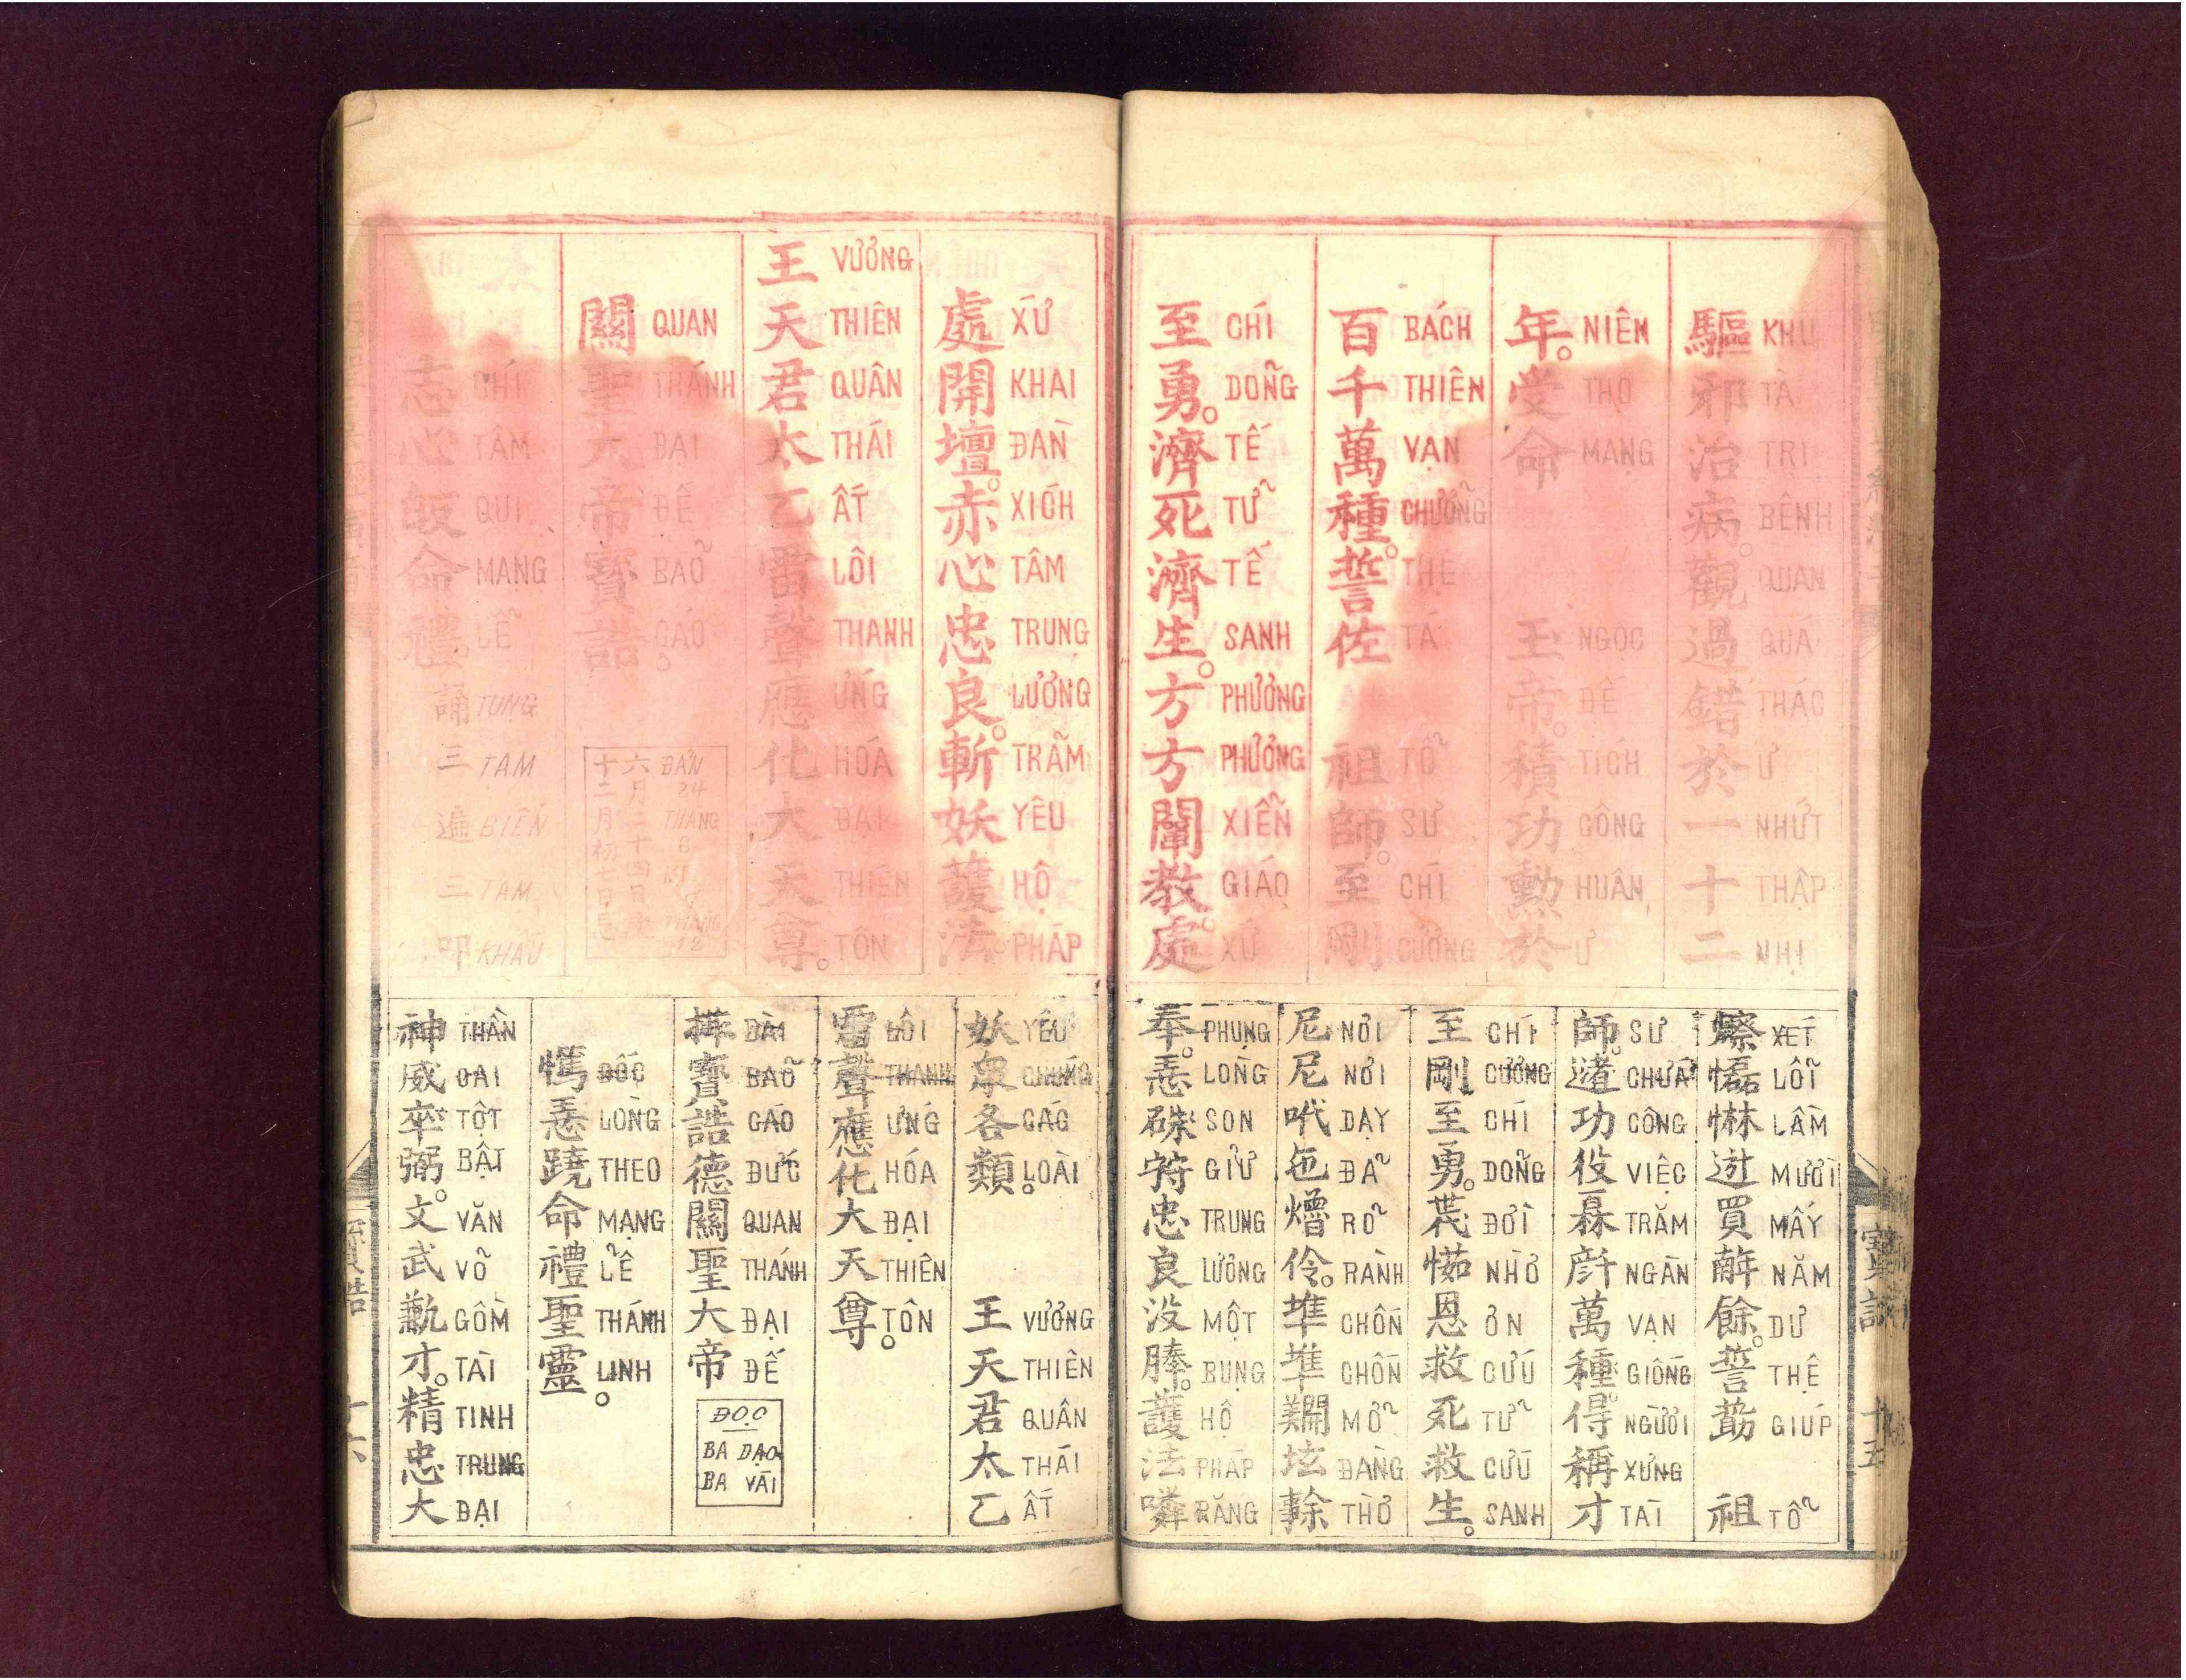 驅邪治病。觀過錯於一十二
KHU TÀ TRỊ BỆNH QUAN QUÁ THÁC Ư NHỨT THẬP NHỊ
年。受命 玉帝。積功勳於
NIÊN THỌ MẠNG NGỌC ĐẾ TÍCH CÔNG HUÂN Ư
百千萬種。誓佐 祖師。至剛
BÁCH THIÊN VẠN CHƯỞNG THỆ TÁ TỔ SƯ CHÍ CƯƠNG
至勇。濟死濟生。方方闡教。處
CHÍ DONG TẾ TỬ TẾ SANH PHƯƠNG PHƯƠNG XIỄN GIÁO XỨ
XÉT LỖI LẦM MƯƠI MẤY NĂM DƯ THỆ GIÚP TỔ
師。功役萬種。得稱才
SƯ CHƯA CÔNG VIỆC TRĂM NGÀN VẠN GIỐNG NGƯỜI XƯNG TÀI
至剛至勇。恩救死救生。
CHÍ CƯƠNG CHÍ DÕNG ĐỜI NHỜ ƠN CỨU TỬ CỨU SANH
NƠI NƠI DẠY ĐÃ RÕ RÀNH CHỐN CHỐN MỞ ĐÀNG THỜ
PHỤNG LÒNG SON GIỮ TRUNG LƯƠNG MỘT BỤNG HỘ PHÁP RĂNG
寶誥 十五
處開壇。赤心忠良。斬妖護法。
XỨ KHAI ĐÀN XÍCH TÂM TRUNG LƯƠNG TRẢM YÊU HỘ PHÁP
王天君太乙雷聲應化大天尊。
VƯƠNG THIÊN QUÂN THÁI ẤT LÔI THANH ỨNG HÓA ĐẠI THIÊN TÔN
關聖大帝寶誥。
QUAN THÁNH ĐẠI ĐẾ BẢO CÁO
六月二十四日
十二月初七日忌
24 THANG 6
THANG 12
志心皈命禮 誦三遍三叩
CHÍ TÂM QUI MẠNG LỄ TỤNG TAM BIẾN TAM KHẤU
妖眾各類。 王天君太乙
YÊU CHÚNG CÁC LOÀI VƯƠNG THIÊN QUÂN THÁI ẤT
雷聲應化大天尊。
LÔI THANH ƯNG HÓA ĐẠI THIÊN TÔN
寶誥德關聖大帝
BÀI BẢO CÁO ĐỨC QUAN THÁNH ĐẠI ĐẾ
ĐỌC
BA DẠO
BA VÁI
命禮聖靈。
DỐC LÒNG THEO MẠNG LỄ THÁNH LINH
神威卒弼。文武才。精忠大
THẦN OAI TỐT BẬT VĂN VÕ GỒM TÀI TINH TRUNG ĐẠI
寶誥 十六